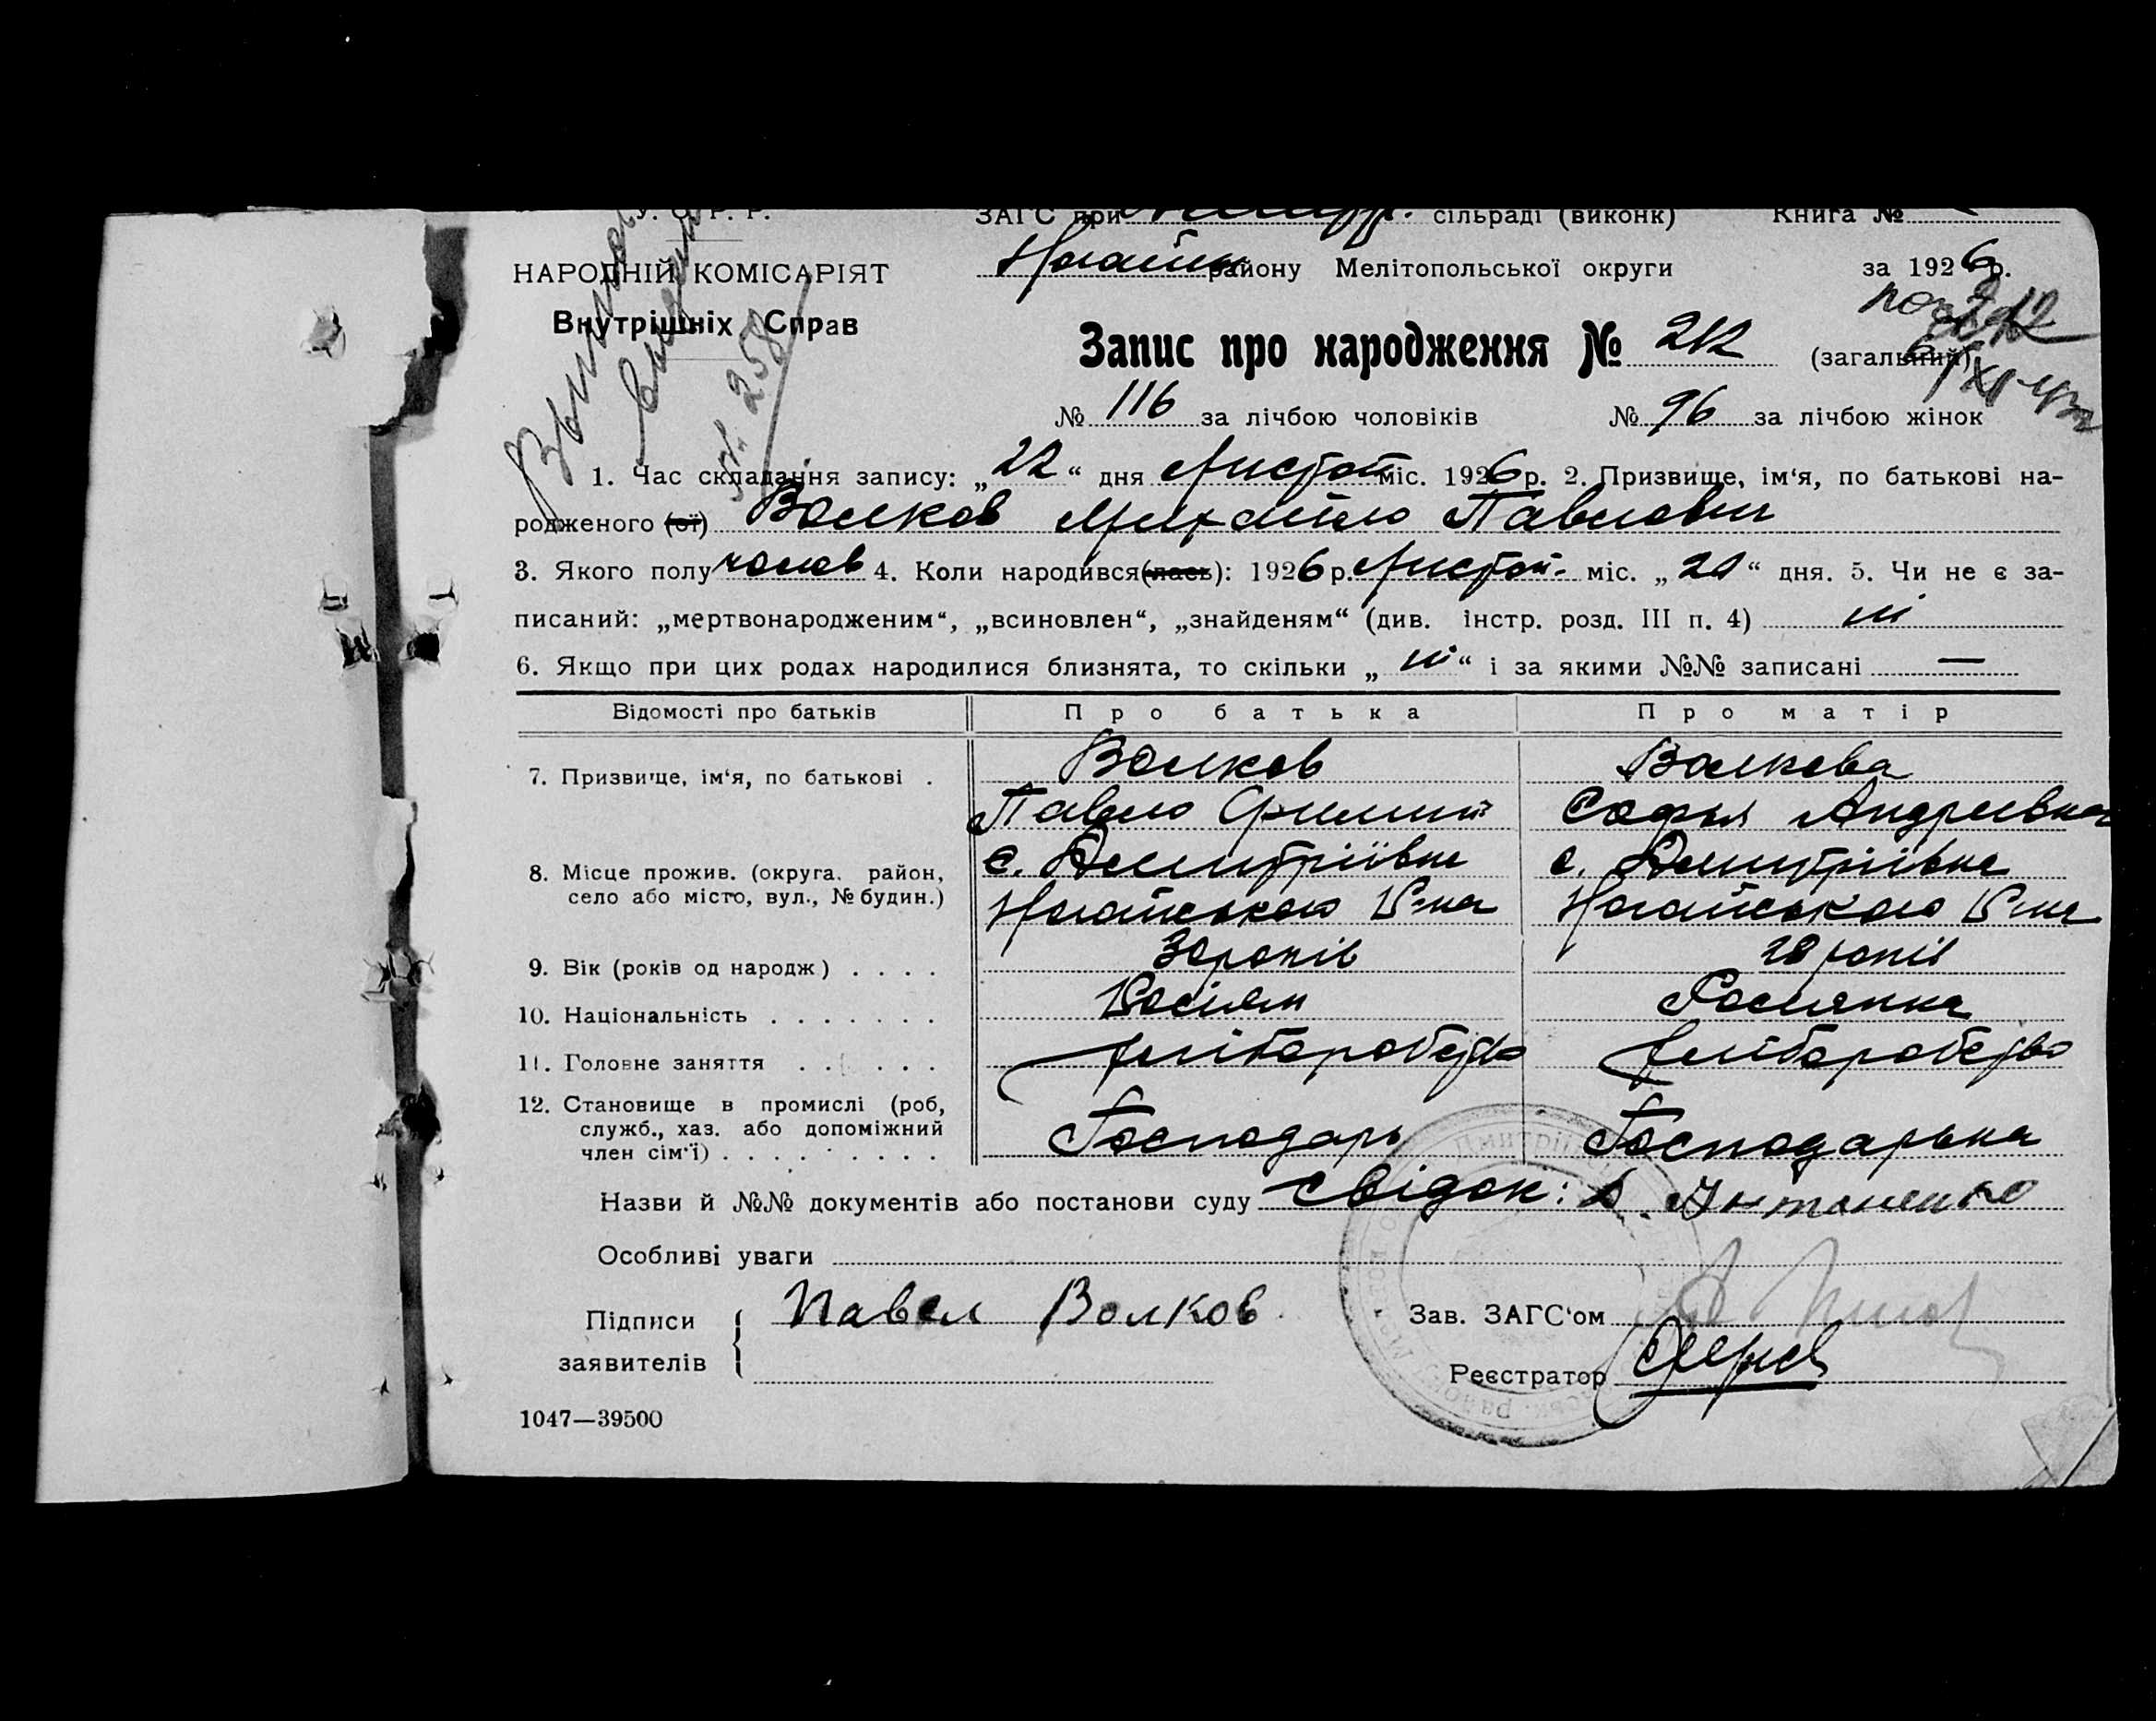 У. С. Р. Р.
ЗАГС при сільраді (виконк) Книга №
НАРОДНІЙ КОМІСАРІЯТ
Внутрішніх Справ
Нагайськ району Мелітопольської округи за 1926 р.
№ 258
Запис про народження № 212 (загальний)
№ 116 за лічбою чоловіків № 96 за лічбою жінок
1. Час складання запису: „22“ дня Листоп міс. 1926 р. 2. Призвище, ім‘я, по батькові на-
родженого (ої) Волков Михайло Павлович
3. Якого полу чолов 4. Коли народився(лась): 1926 р. Листоп. міс. „20“ дня. 5. Чи не є за-
писаний: „мертвонародженим“, „всиновлен“, „знайденям“ (див. інстр. розд. III п. 4) ні
6. Якщо при цих родах народилися близнята, то скільки „ні“ і за якими №№ записані —
Відомості про батьків Про батька Про матір
7. Призвище, ім‘я, по батькові . Волков Волкова
Павло Софья Андреевна
8. Місце прожив. (округа, район, с. Дмитріївка с. Дмитріївка
село або місто, вул., № будин.) Ногайського Р-на Ногайського Р-на
9. Вік (років од народж) . . . . 30 років 28 років
10. Національність . . . . . . . Росіян Росиянка
11. Головне заняття . . . . . . Хліборобство Хліборобство
12. Становище в промислі (роб,
служб., хаз. або допоміжний Господарь Господарька
член сім‘ї) . . . . . . . . .
Назви й №№ документів або постанови суду Свідок: А. Антоненко
Особливі уваги
Підписи Павел Волков Зав. ЗАГС‘ом
заявителів Реєстратор
1047—39500